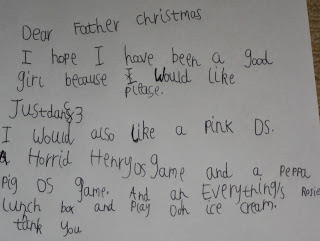 Dear Father christmas
I hope I have been a good
girl because I would like
please.
Justdance3
I would also like a pink DS.
A Horrid Henry DS game and a Peppa
pig DS game. And an Everything's Rosie
lunch box and play doh ice cream.
tank you